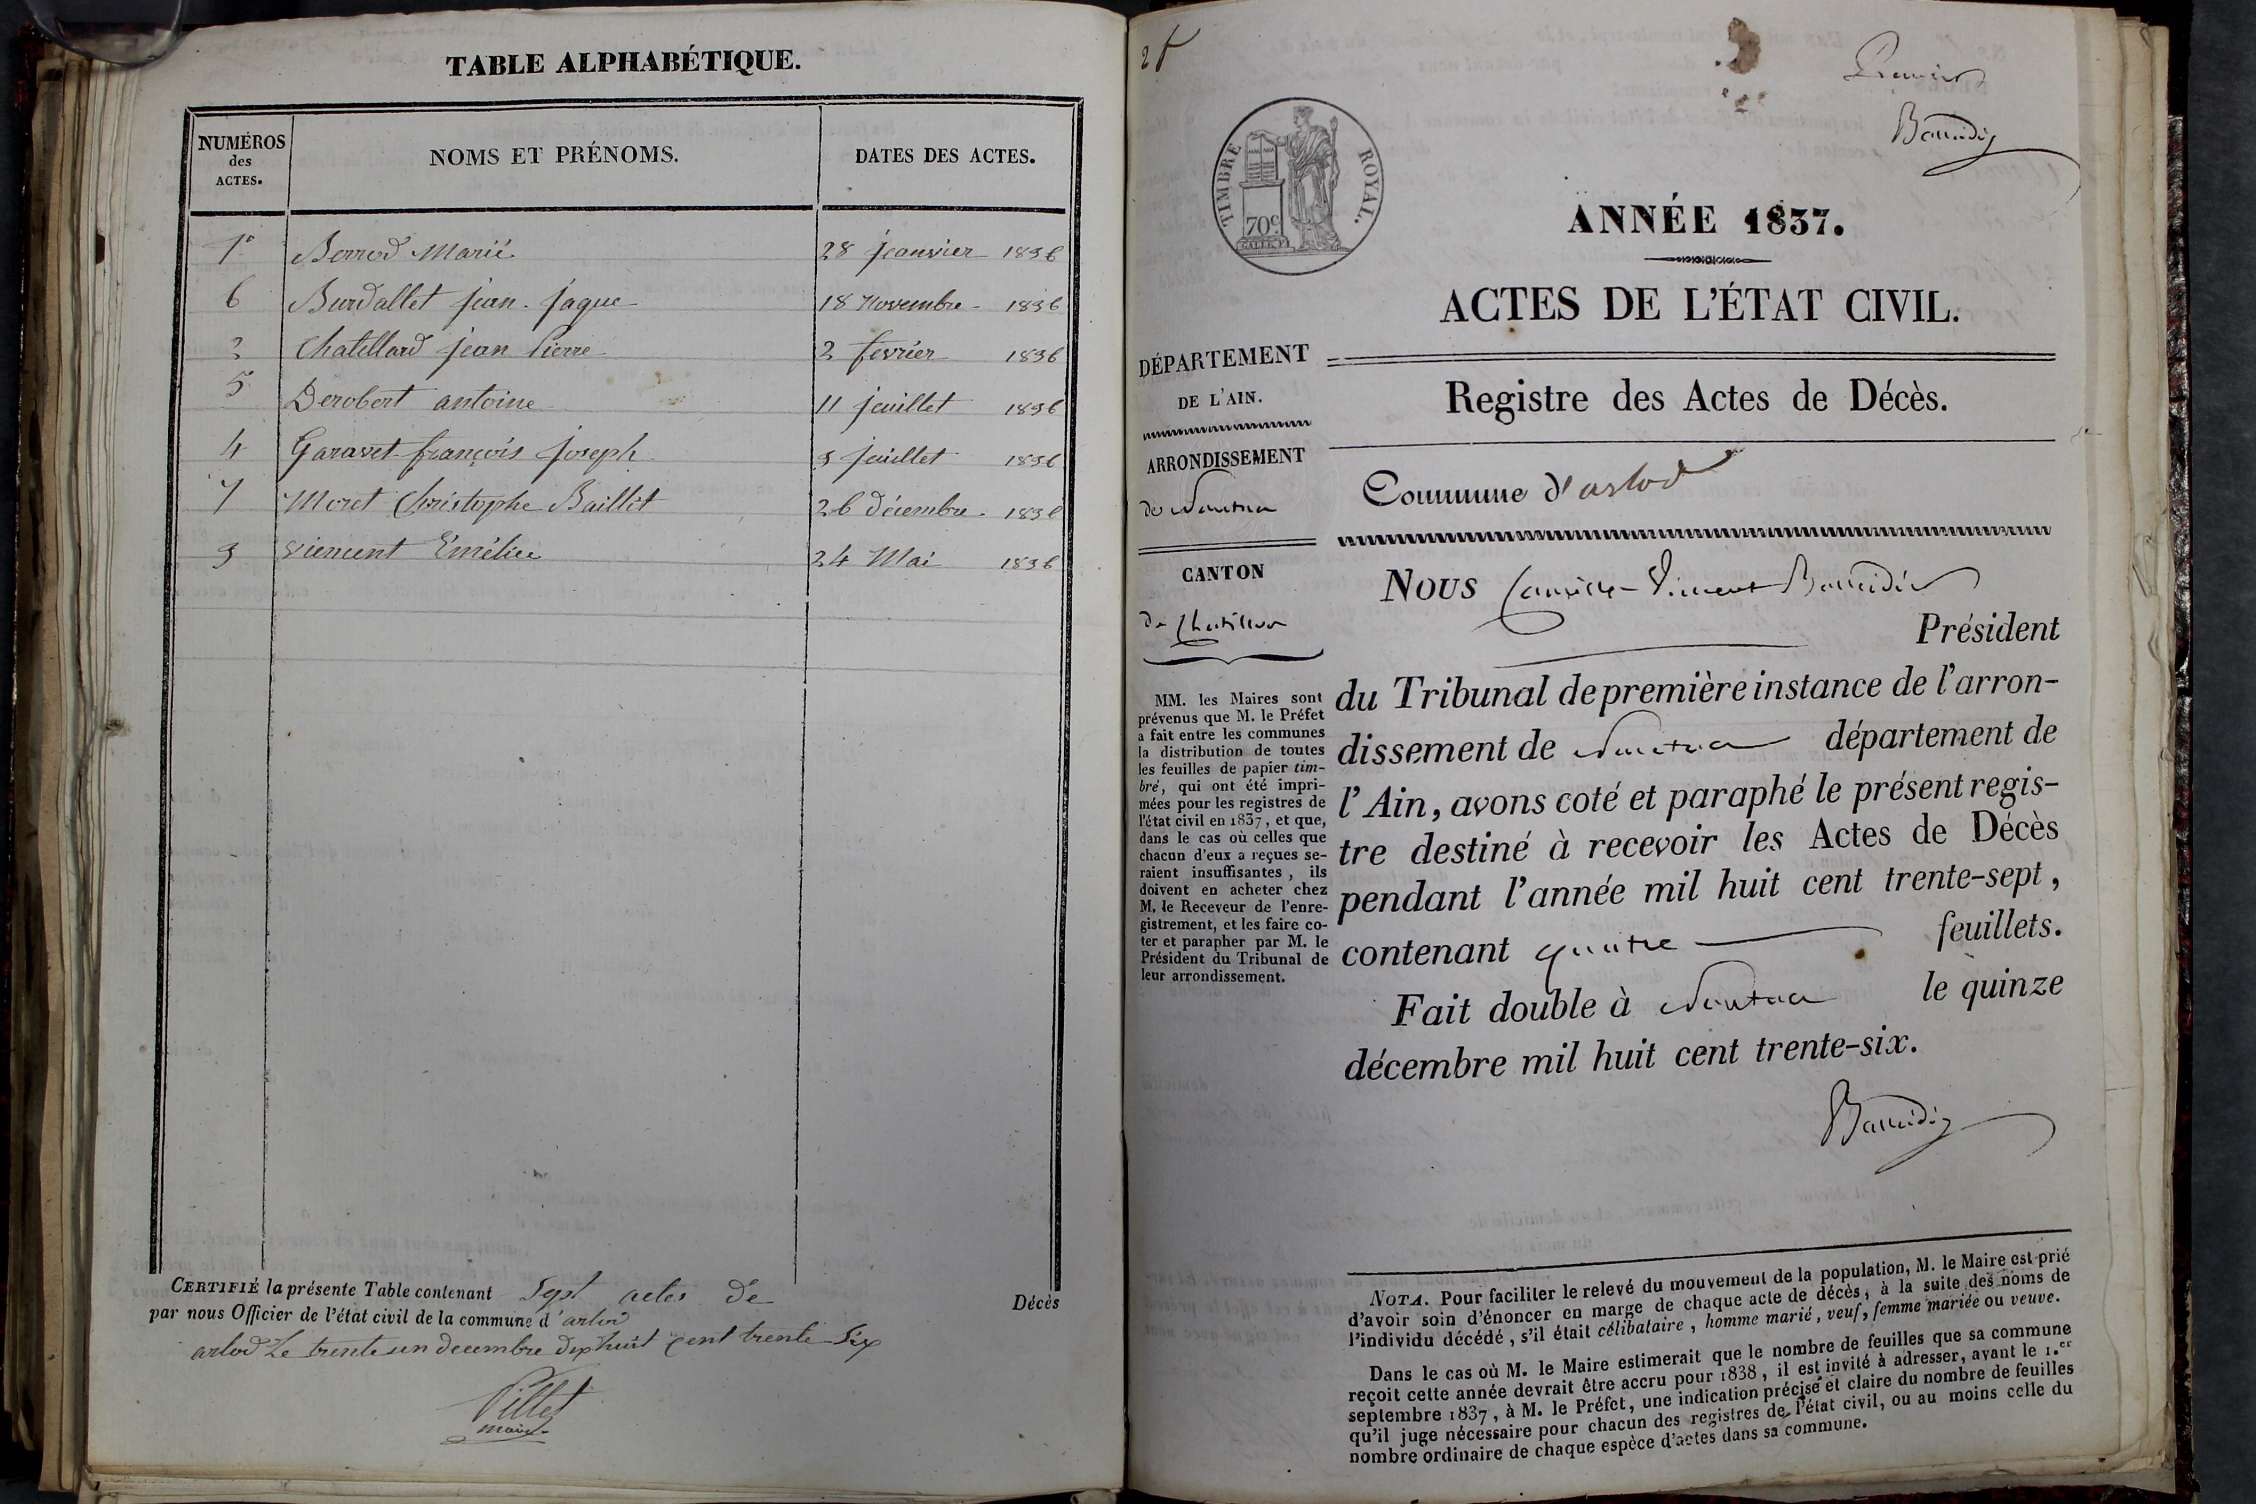 TABLE ALPHABÉTIQUE.
NUMÉROS
des
ACTES.
NOMS ET PRÉNOMS.
DATES DES ACTES.
1º Berrod Marie 28 janvier 1836
6 Burdallet jean jaque 18 Novembre 1836
2 Chatillard jean Pierre 2 fevrier 1836
5 Derobert antoine 11 juillet 1836
4 Garavet françois joseph 3 juillet 1836
7 Moret Christophe Baillit 26 décembre 1836
3 Viencent Emélie 24 Mai 1836
CERTIFIÉ la présente Table contenant Sept actes de Décès
par nous Officier de l'état civil de la commune d'arlod
arlod Le trente un decembre dix huit cent trente Six
Pillet
maire
Premier
Baudin
TIMBRE ROYAL.
70c
ANNÉE 1837.
ACTES DE L'ÉTAT CIVIL.
DÉPARTEMENT
DE L'AIN.
Registre des Actes de Décès.
ARRONDISSEMENT
de Nantua
Commune d'arlod
CANTON
de Chatillon
Nous Vincent
Président
du Tribunal de première instance de l'arron-
dissement de Nantua département de
l'Ain, avons coté et paraphé le présent regis-
tre destiné à recevoir les Actes de Décès
pendant l'année mil huit cent trente-sept,
contenant quatre feuillets.
Fait double à Nantua le quinze
décembre mil huit cent trente-six.
MM. les Maires sont
prévenus que M. le Préfet
a fait entre les communes
la distribution de toutes
les feuilles de papier tim-
bré, qui ont été impri-
mées pour les registres de
l'état civil en 1837, et que,
dans le cas où celles que
chacun d'eux a reçues se-
raient insuffisantes, ils
doivent en acheter chez
M. le Receveur de l'enre-
gistrement, et les faire co-
ter et parapher par M. le
Président du Tribunal de
leur arrondissement.
NOTA. Pour faciliter le relevé du mouvement de la population, M. le Maire est prié
d'avoir soin d'énoncer en marge de chaque acte de décès, à la suite des noms de
l'individu décédé, s'il était célibataire, homme marié, veuf, femme mariée ou veuve.
Dans le cas où M. le Maire estimerait que le nombre de feuilles que sa commune
reçoit cette année devrait être accru pour 1838, il est invité à adresser, avant le 1.er
septembre 1837, à M. le Préfet, une indication précise et claire du nombre de feuilles
qu'il juge nécessaire pour chacun des registres de l'état civil, ou au moins celle du
nombre ordinaire de chaque espèce d'actes dans sa commune.